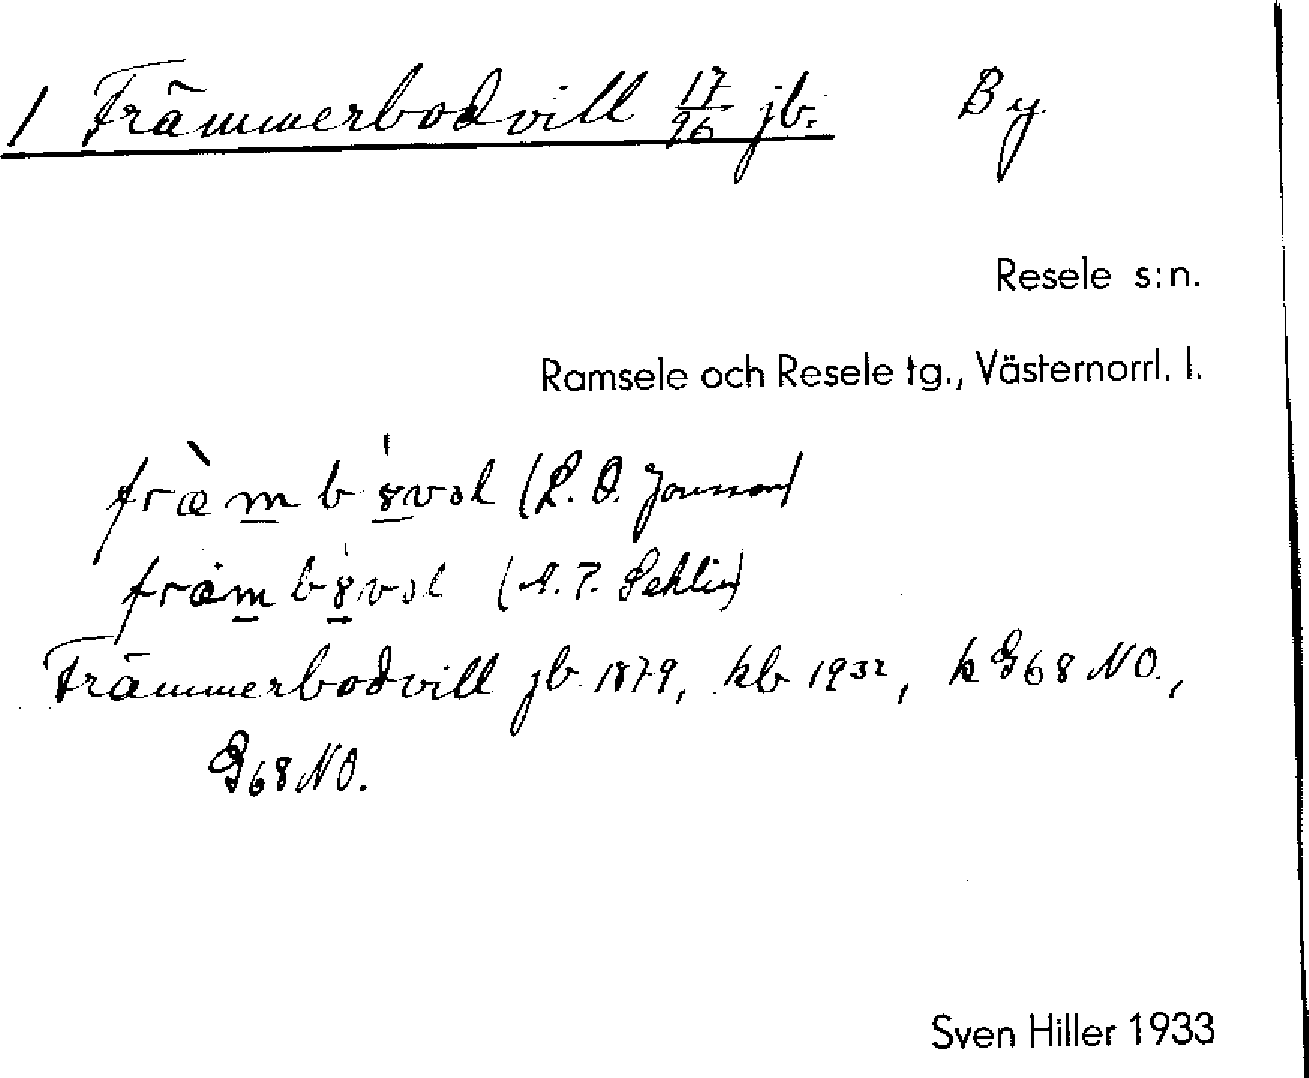 1 Främmerbodvill 17/96 jb. By
Resele s:n.
Ramsele och Resele tg., Västernorrl. l.
(L. O. Jonsson)
(A. P. Sehlin)
Främmerbodvill jb 1879, kb 1932, k G68 NO.,
G68 NO.
Sven Hiller 1933